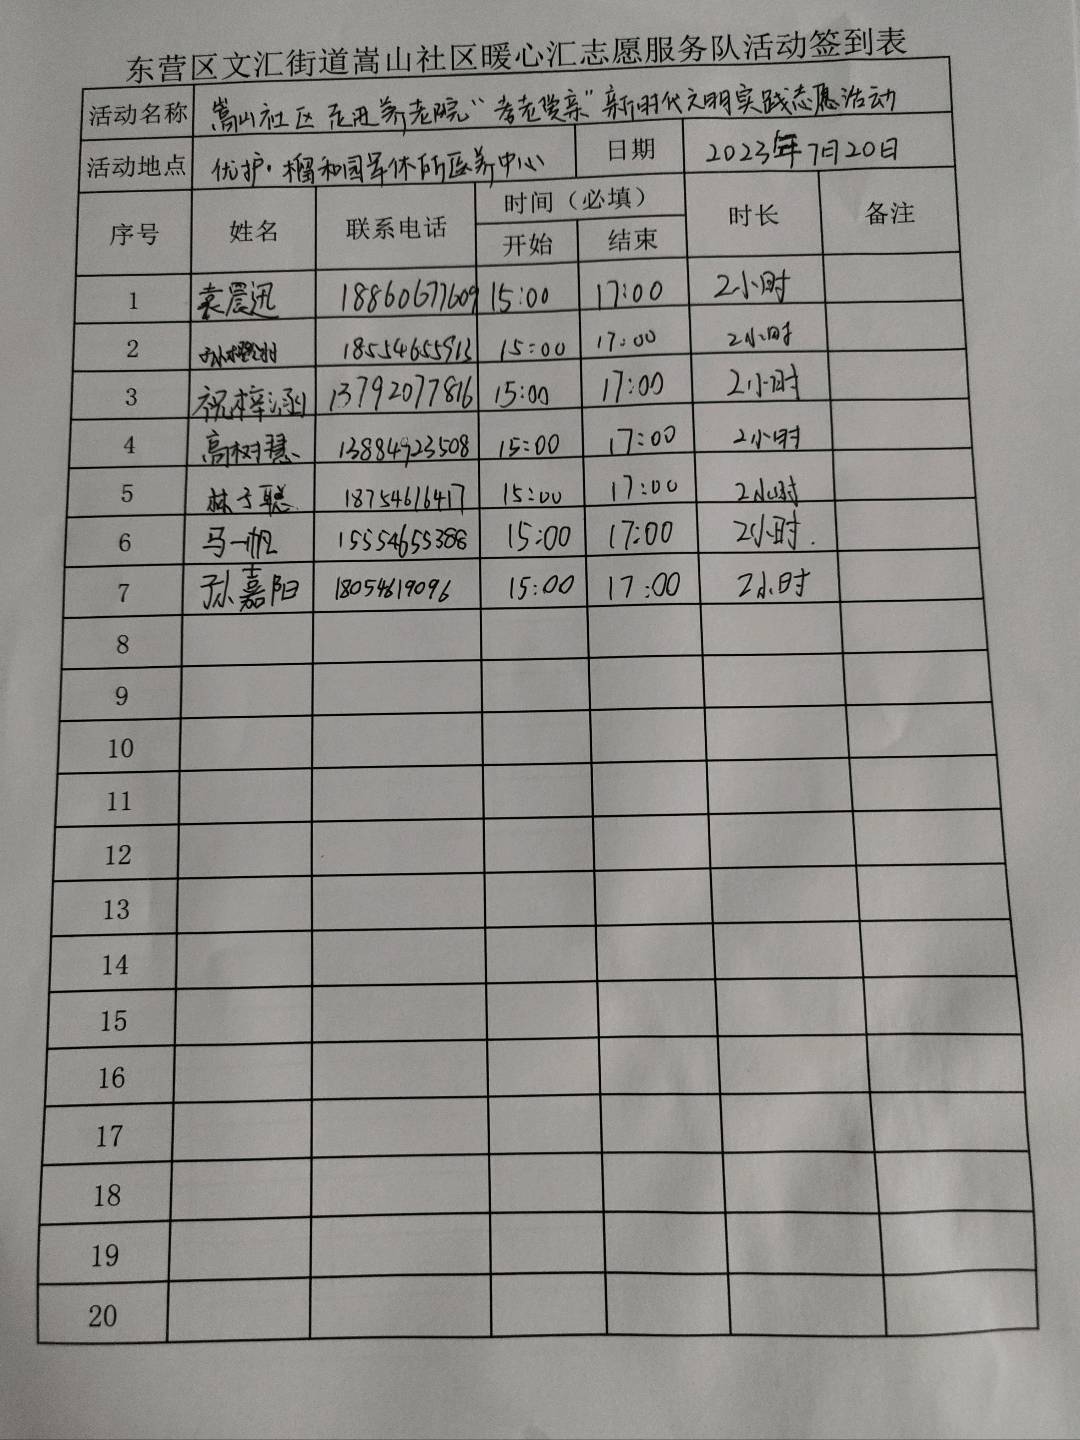 东营区文汇街道嵩山社区暖心汇志愿服务队活动签到表
活动名称 嵩山社区走进养老院“孝老爱亲”新时代文明实践志愿活动
活动地点 优护·榴和园军休所医养中心 日期 2023年7月20日
序号 姓名 联系电话 时间（必填） 时长 备注
开始 结束
1 袁晨迅 18860677609 15:00 17:00 2小时
2 18554655913 15:00 17:00 2小时
3 祝梓涵 13792077816 15:00 17:00 2小时
4 高树慧 13884923508 15:00 17:00 2小时
5 林子聪 18754616417 15:00 17:00 2小时
6 马一帆 15554655388 15:00 17:00 2小时.
7 孙嘉阳 18054619096 15:00 17:00 2小时
8
9
10
11
12
13
14
15
16
17
18
19
20